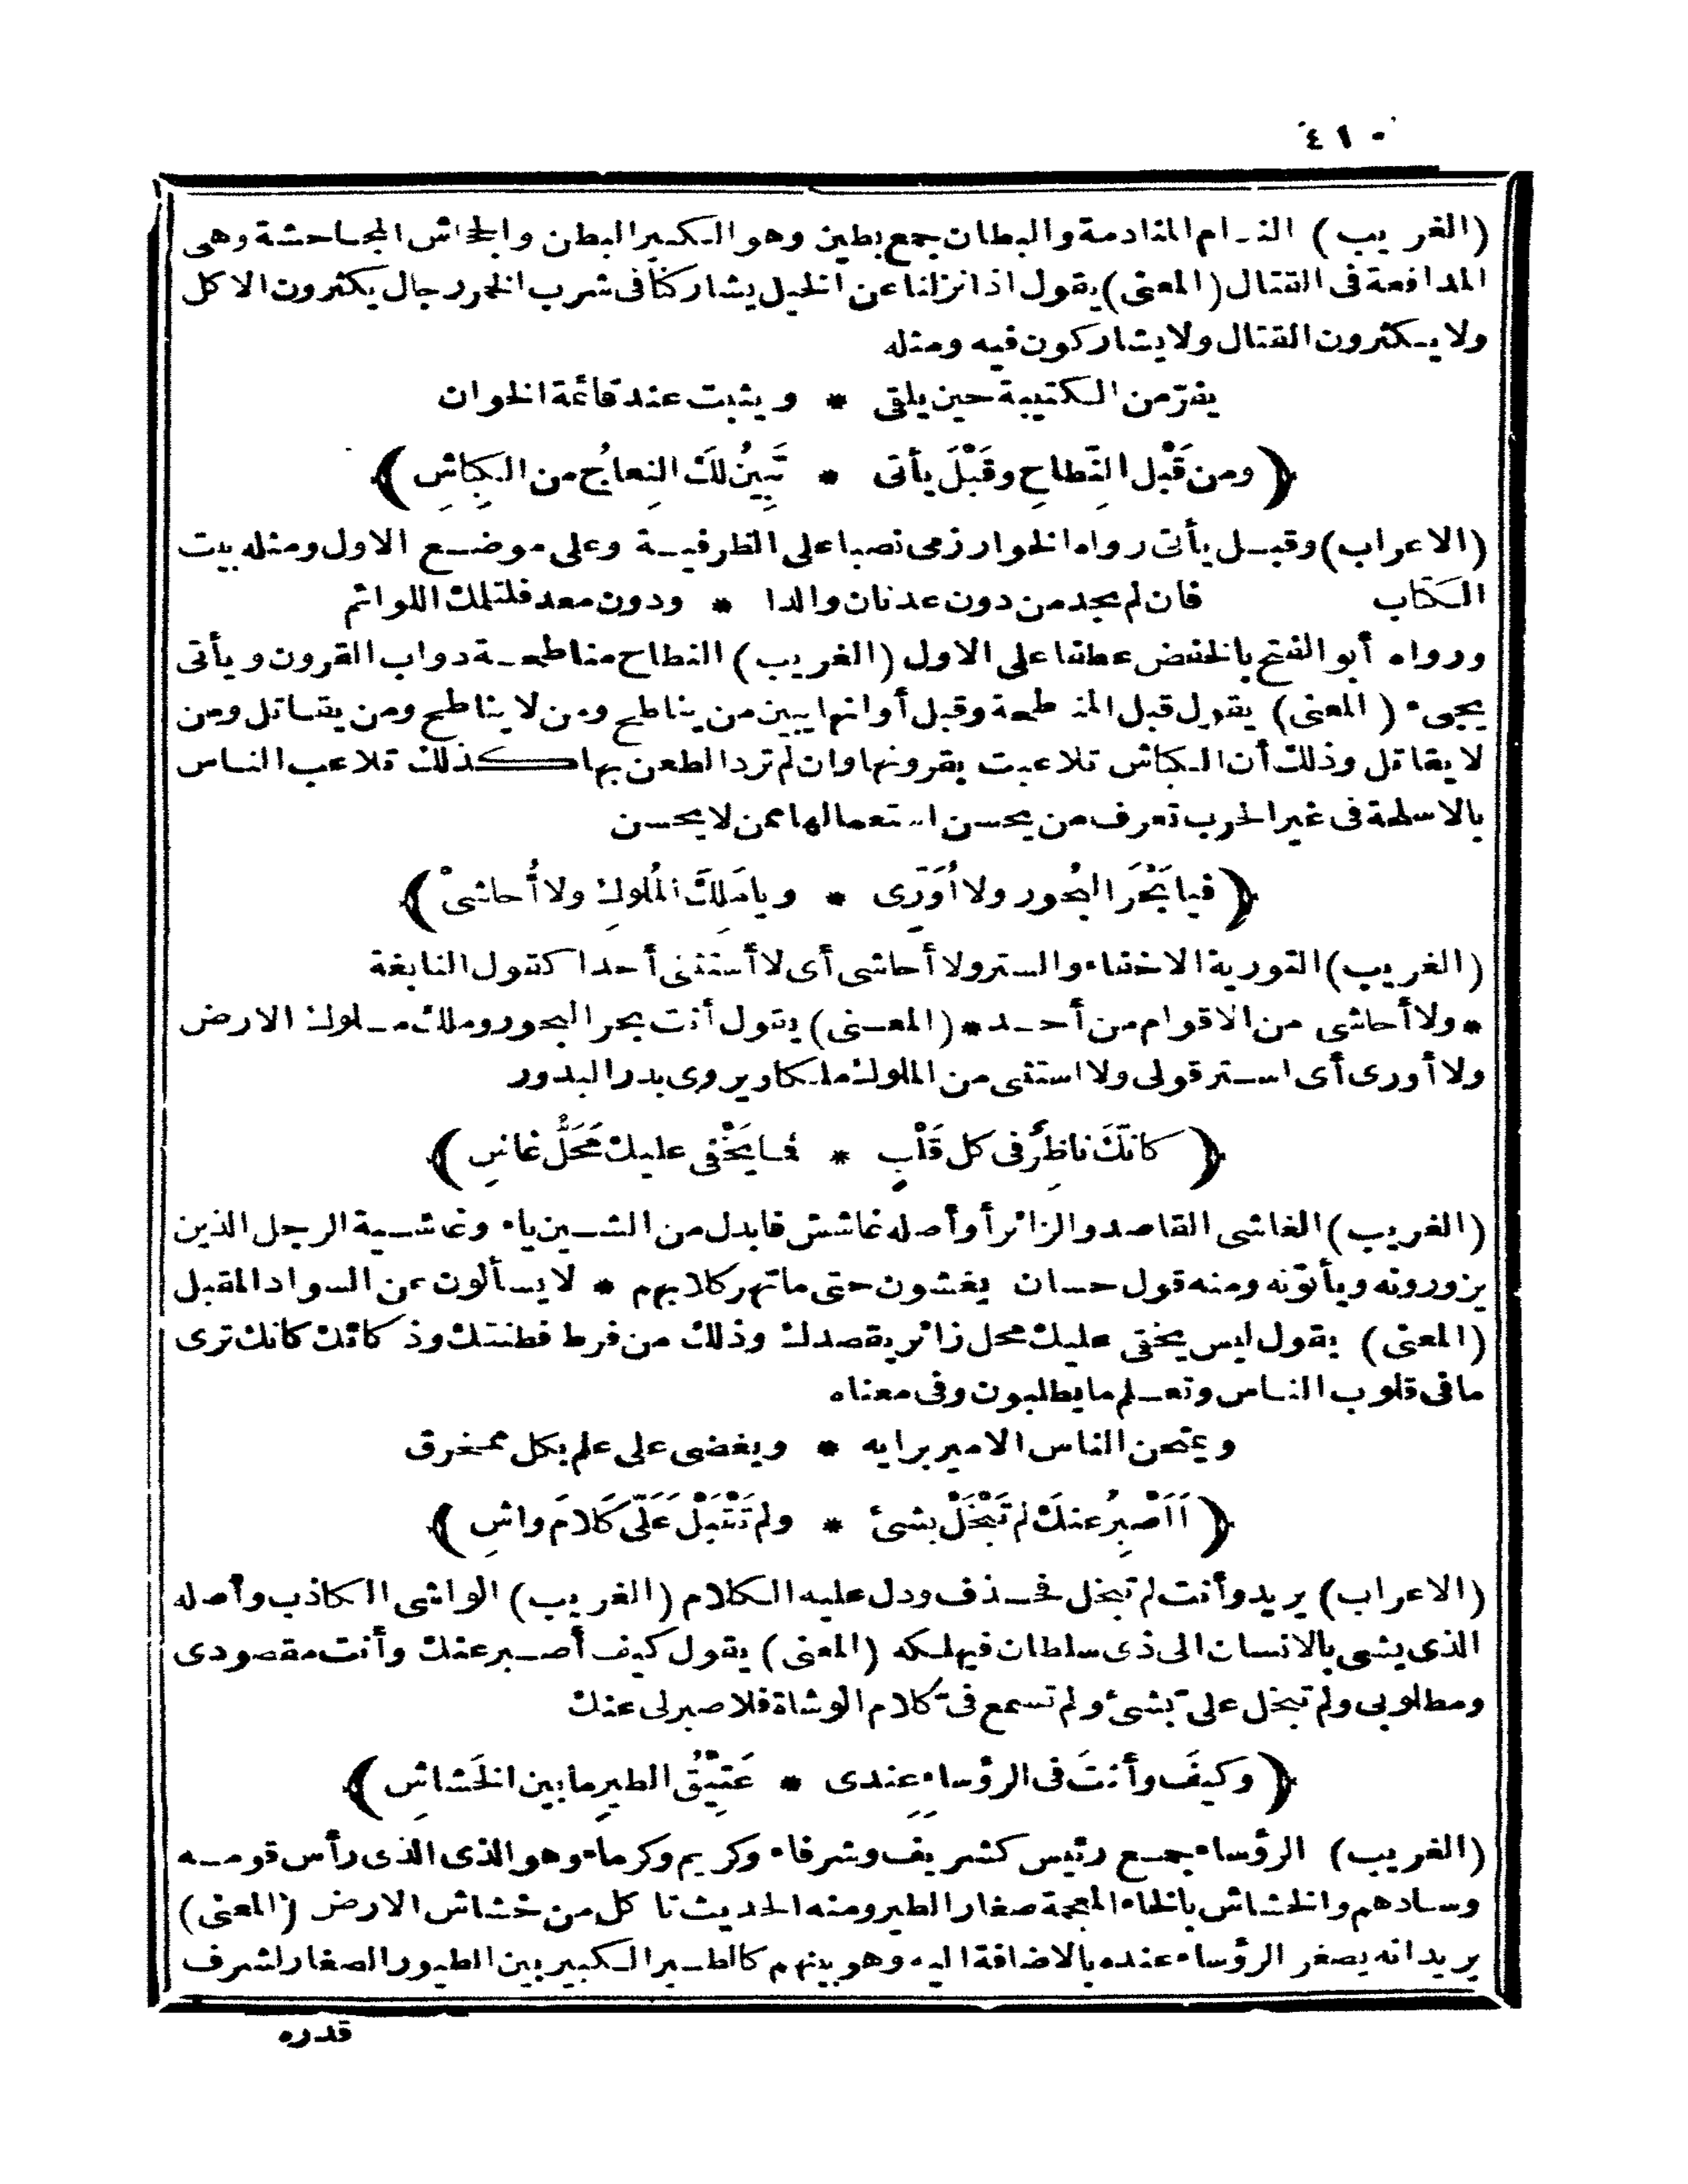 ٤١٠
(الغريب) الندام المنادمة والبطان جمع بطين وهو الكبير البطن والجحاش المجاحشة وهى
المدافعة فى القتال (المعنى) يقول اذا نزلنا عن الخيل يشاركنا فى شرب الخمر رجال يكثرون الاكل
ولا يكثرون القتال ولا يشاركون فيه ومثله
يفرّ من الكتيبة حين يلقى * ويثبت عند قائمة الخوان
﴿ ومن قَبْلِ النِّطاحِ وقَبْلَ يأتى * تَبِينُ لَكَ النِعاجُ من الكِباشِ ﴾
(الاعراب) وقبل يأتى رواه الخوارزمى نصبا على الظرفية وعلى موضع الاول ومثله بيت
الكتاب فان لم تجد من دون عدنان والدا * ودون معد فلتلمك اللوائم
ورواه أبو الفتح بالخفض عطفا على الاول (الغريب) النطاح مناطحة دواب القرون ويأتى
يجىء (المعنى) يقول قبل المناطحة وقبل أوانها يبين من يناطح ومن لا يناطح ومن يقاتل ومن
لا يقاتل وذلك أن الكباش تلاعبت بقرونها وان لم ترد الطعن بها كذلك تلاعب الناس
بالاسلحة فى غير الحرب تعرف من يحسن استعمالها ممن لا يحسن
﴿ فيا بَحْرَ البُحور ولا أُوَرِّى * ويا مَلِكَ المُلوكِ ولا أُحاشىْ ﴾
(الغريب) التورية الاخفاء والستر ولا أحاشى أى لا أستثنى أحدا كقول النابغة
* ولا أحاشى من الاقوام من أحد * (المعنى) يقول أنت بحر البحور وملك ملوك الارض
ولا أورى أى استر قولى ولا استثنى من الملوك ملكا ويروى بدر البدور
﴿ كأنّكَ ناظِرٌ فى كل قَلْبٍ * فما يَخْفى عليك مَحَلُّ غاشِ ﴾
(الغريب) الغاشى القاصد والزائر أو أصله غاشش فابدل من الشين ياء وغاشية الرجل الذين
يزورونه ويأتونه ومنه قول حسان يغشون حتى ما تهر كلابهم * لا يسألون عن السواد المقبل
(المعنى) يقول ليس يخفى عليك محل زائر يقصدك وذلك من فرط فطنتك وذكائك كانك ترى
ما فى قلوب الناس وتعلم ما يطلبون وفى معناه
ويمتحن الناس الامير برايه * ويغضى على علم بكل ممخرق
﴿ أَأَصْبِرُ عنكَ لم تَبْخَلْ بشئ * ولم تَقْبَلْ عَلَىّ كَلامَ واشِ ﴾
(الاعراب) يريد وأنت لم تبخل فحذف ودل عليه الكلام (الغريب) الواشى الكاذب وأصله
الذى يشى بالانسان الى ذى سلطان فيهلكه (المعنى) يقول كيف أصبر عنك وأنت مقصودى
ومطلوبى ولم تبخل علىّ بشئ ولم تسمع فىّ كلام الوشاة فلا صبر لى عنك
﴿ وكيفَ وأنتَ فى الرؤساءِ عِندى * عَتِيْقُ الطيرِ ما بين الخَشاشِ ﴾
(الغريب) الرؤساء جمع رئيس كشريف وشرفاء وكريم وكرماء وهو الذى الذى رأس قومه
وسادهم والخشاش بالخاء المعجمة صغار الطير ومنه الحديث تاكل من خشاش الارض (المعنى)
يريد انه يصغر الرؤساء عنده بالاضافة اليه وهو بينهم كالطير الكبير بين الطيور الصغار لشرف
قدره